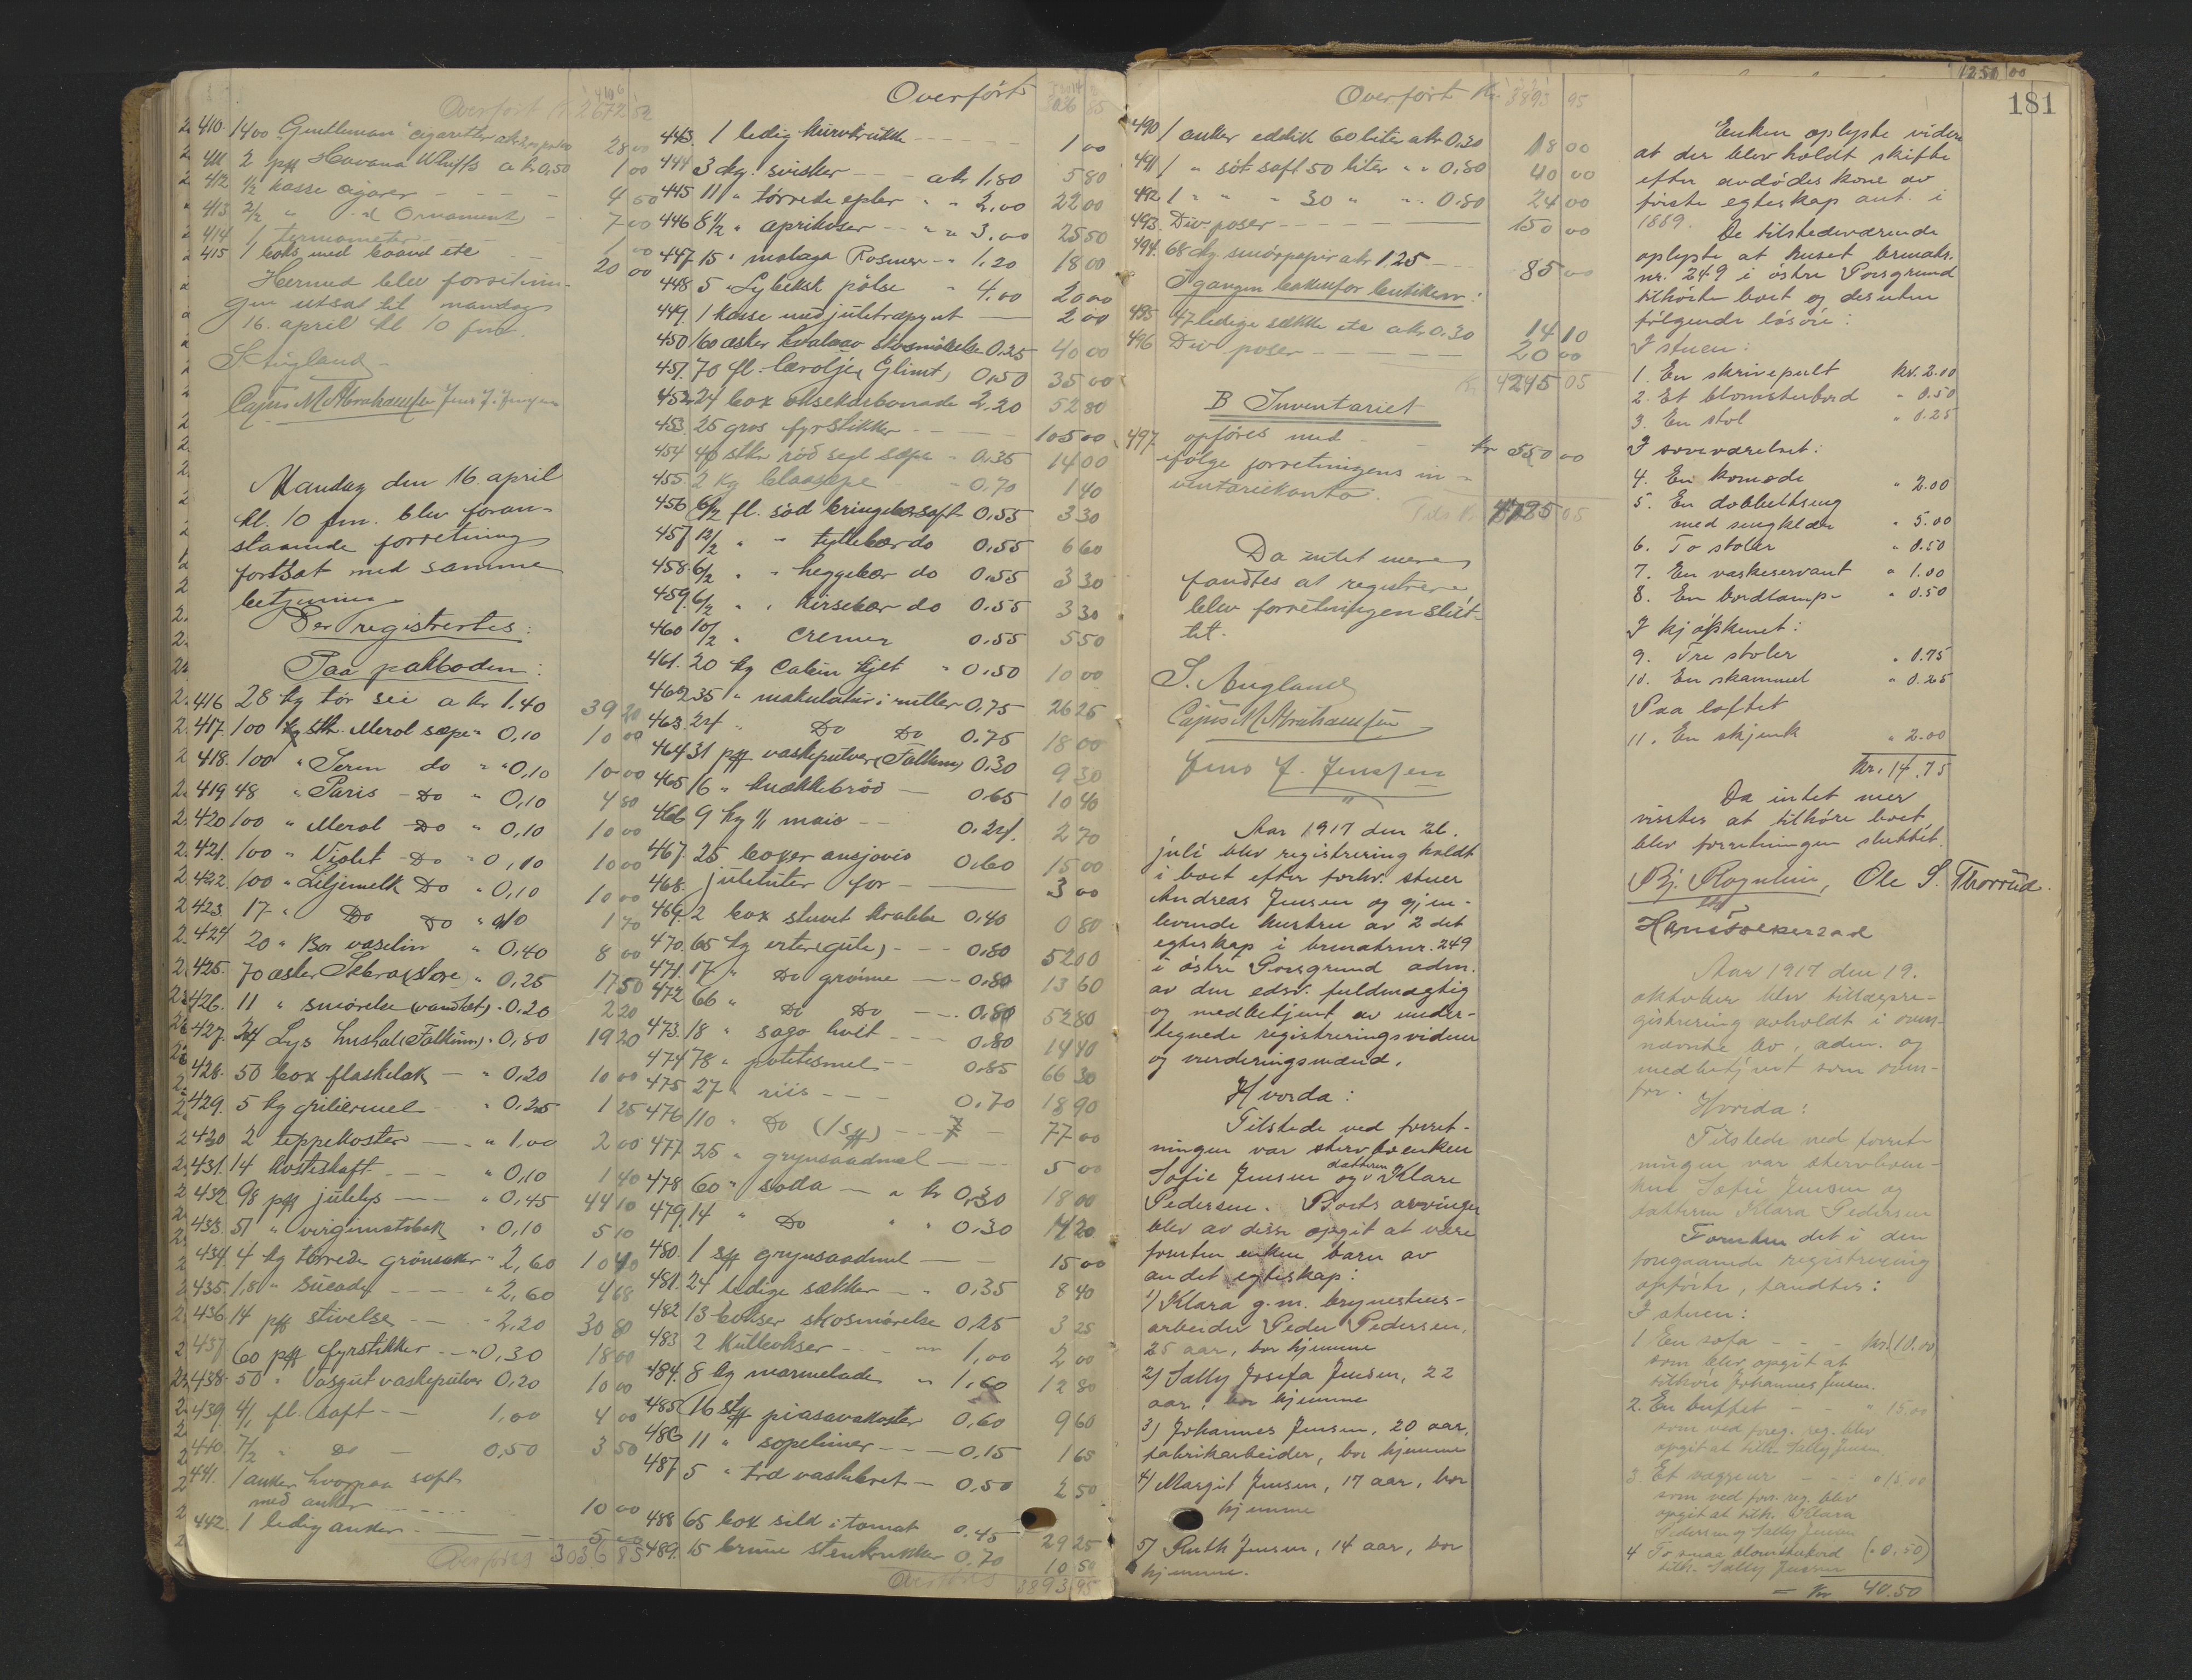 Overført Kr 2672 52
410. 1400 "Gentleman" cigaretter 28 00
411 2 pk Havana Whiffs a kr 0,50 1 00
412 1/2 kasse cigarer - - - 4 00
413 2/2 " d Ornament - 7 00
414 1 termometer - - 1 00
415 1 boks med baand etc - - 20 00
Hermed blev forretnin-
gen utsat til mandag
16. april kl 10 fm.
S. Augland
Cajus M Abrahamsen Jens J. Jensen
Mandag den 16. april
kl. 10 fm. blev foran-
staaende forretning
fortsat med samme
betjening
Der registrertes:
Paa pakboden:
416 28 kg tør sei a kr 1.40 39 20
417. 100 stk. Merol sæpe " 0,10 10 00
418. 100 " Seren do " " 0,10 10 00
419 48 " Paris - Do " 0,10 4 80
420 100 " Merol - Do " 0,10 10 00
421. 100 " Violet - Do " 0,10 10 00
422. 100 " Liljemelk Do " 0,10 10 00
423. 17 " Do Do " 0,10 1 70
424 20 " Bor vaselin " 0,40 8 00
425. 70 æsker Sebra (store) " 0,25 17 50
426. 11 " smørelse (vandtæt) " 0,20 2 20
427. 24 Lys hushol (Falken) " 0,80 19 20
428. 50 box flaskelak - " 0,20 10 00
429. 5 kg griliermel " 0,25 1 25
430 2 teppekoster - - " 1,00 2 00
431. 14 kosteskaft - - " 0,10 1 40
432 98 pk julelys - - " 0,45 44 10
433. 51 " virginiatobak " 0,10 5 10
434. 4 kg tørrede grønsaker " 2,60 10 40
435. 1,8 " sucade - - - " 2,60 4 68
436. 14 pk stivelse - - - 2,20 30 80
437 60 pk fyrstikker - - " 0,30 18 00
438. 50 " Vasgut vaskepulver 0,20 10 00
439. 4/1 fl. saft - - 1,00 4 00
440. 7/2 " Do - 0,50 3 50
441. 1 anker hvorpaa saft
med anker - - - - 10 00
442. 1 ledig anker - - 5 00
Overføres 3036 85
Overført 3036 85
443. 1 ledig kurvkrukke - - - - 1 00
444 3 kg. svisker - - - a kr 1,80 5 80
445 11 " tørrede epler " " 2,00 22 00
446 8 1/2 " aprikoser - - " " 3,00 25 50
447 15 " malaga Rosiner - " 1,20 18 00
448 5 Lybeksk pølse " 4,00 20 00
449. 1 kasse med juletræpynt - 2 00
450 160 æsker skosmørelse 0,25 40 00
451. 70 fl. lærolje (Glimt) 0,50 35 00
452. 24 box oksekarbonade 2,20 52 80
453. 25 gros fyrstikker - - - - 105 00
454 40 stkr rød segl sæpe - 0,35 14 00
455. 2 kg blaasæpe " 0,70 1 40
456 6/2 fl. sød bringebærsaft 0,55 3 30
457 12/2 " - tyttebær do 0,55 6 60
458. 6/2 " - heggebær do 0,55 3 30
459. 6/2 " " kirsebær do 0,55 3 30
460 10/2 " cremer 0,55 5 50
461. 20 kg Cabin kjæk " 0,50 10 00
462 35 " makulatur i ruller 0,75 26 25
463. 24 " Do Do 0.75 18 00
464 31 pk vaskepulver (Falken) 0,30 9 30
465 16 " knækkebrød - 0,65 10 40
466 9 kg 1/1 mais - - 0,24 2 70
467. 25 boxer ansjovis 0,60 15 00
468. juletuter for - - 3 00
469. 2 box stuvet krabbe 0,40 0 80
470. 65 kg erter (gule) - - - 0,80 52 00
471. 17 " Do grønne - - 0,80 13 60
472 66 " Do Do - - 0,80 52 80
473. 18 " sago hvit - - - 0,80 14 40
474 78 " potetesmel - 0,85 66 30
475 27 " riis - - - 0,70 18 90
476 110 " Do (1 sk) - - - 77 00
477. 25 " grynsaadmel - - - 5 00
478 60 " soda - " kr 0,30 18 00
479. 14 " Do " " 0,30 4 20
480. 1 sk grynsaadmel - - 15 00
481. 24 ledige sækker - " 0,35 8 40
482 13 bokser skosmørelse 0,25 3 25
483 2 kulbokser - - - 1,00 2 00
484. 8 kg marmelade " 1,60 12 80
485 16 stk piasavakoster 0,60 9 60
486 11 " sopelimer - - - 0,15 1 65
487 5 " træ vaskebret - 0,50 2 50
488 65 box sild i tomat 0,45 29 25
489. 15 brune stenkrukker 0,70 10 50
Overføres 3893 95
Overført Kr. 3893 95
490 1 anker eddik 60 liter a kr 0,30 18 00
491 1 " søt saft 50 liter " " 0,80 40 00
492 1 " " " 30 " " " 0.80 24 00
493. Div poser - - - - 150 00
494. 68 kg smørpapir a kr 1.25 - 85 00
I gangen bakenfor butikken:
495 47 ledige sække etc a kr 0.30 14 10
496 Div poser - - - - 20 00
Kr 4245 05
B Inventariet
497. opføres med - - kr 550 00
ifølge forretningens in-
ventariekonto.
Tils Kr 4795 05
Da intet mere
fandtes at registrere
blev forretningen slut-
tet.
S. Augland
Cajus M Abrahamsen
Jens J. Jensen
"
Aar 1917 den 26.
juli blev registrering holdt
i boet efter forhv. stuer
Andreas Jensen og gjen-
levende hustru av 2 det
egteskap i brmatrnr. 249
i østre Porsgrund adm.
av den edsv. fuldmægtig
og medbetjent av under-
tegnede registreringsvidner
og vurderingsmænd.
Hvorda:
Tilstede ved forret-
ningen var stervboenken
Sofie Jensen og datteren Klara
Pedersen. Boets arvinger
blev av disse opgit at være
foruten enken barn av
andet egteskap:
1) Klara g.m. brynestens-
arbeider Peder Pedersen,
25 aar, bor hjemme
2) Sally Josefa Jensen, 22
aar, bor hjemme
3) Johannes Jensen, 20 aar,
fabrikarbeider, bor hjemme
4) Margit Jensen, 17 aar, bor
hjemme
5) Ruth Jensen, 14 aar, bor
hjemme.
1250 00
181
Enken oplyste videre
at der blev holdt skifte
efter avdødes kone av
første egteskap ant. i
1889.
De tilstedeværende
oplyste at huset brmatr.
nr. 249 i østre Porsgrund
tilhørte boet og desuten
følgende løsøre:
I stuen:
1. En skrivepult kr. 2.00
2. Et blomsterbord " 0.50
3. En stol " 0.25
I soveværelset:
4. En komode " 2.00
5. En dobbeltseng
med sengklær " 5.00
6. To stoler " 0.50
7. En vaskeservant " 1.00
8. En bordlampe " 0.50
I kjøkkenet:
9. Tre stoler " 0.75
10. En skammel " 0.25
Paa loftet
11. En skjænk " 2.00
Kr. 14.75
Da intet mer
visstes at tilhøre boet
blev forretningen sluttet.
Bj. Rognlien, Ole S. Thorrud.
Aar 1917 den 19.
oktober blev tillægsre-
gistrering avholdt i oven-
nævnte bo, adm. og
medbetjent som oven-
for.
Hvorda:
Tilstede ved forret-
ningen var stervboen-
ken Sofie Jensen og
datteren Klara Pedersen
Foruten det i den
foregaaende registrering
opførte, fandtes:
I stuen:
1. En sofa - - - kr. (10.00
som blev opgit at
tilhøre Johannes Jensen.
2. En buffet - - " 15.00
som ved foreg. reg. blev
opgit at tilh. Sally Jensen
3. Et væggeur - - " 15.00
som ved forr. reg. blev
opgit at tilh. Klara
Pedersen og Sally Jensen
4 To smaa blomsterbord (" 0,50)
tilh. Sally Jensen
= Kr 40.50